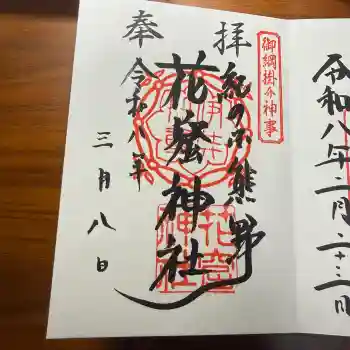 令和八年二月二十三日
御綱掛け神事
奉拝
紀の国熊野
花窟神社
令和八年
三月八日
花窟
神社